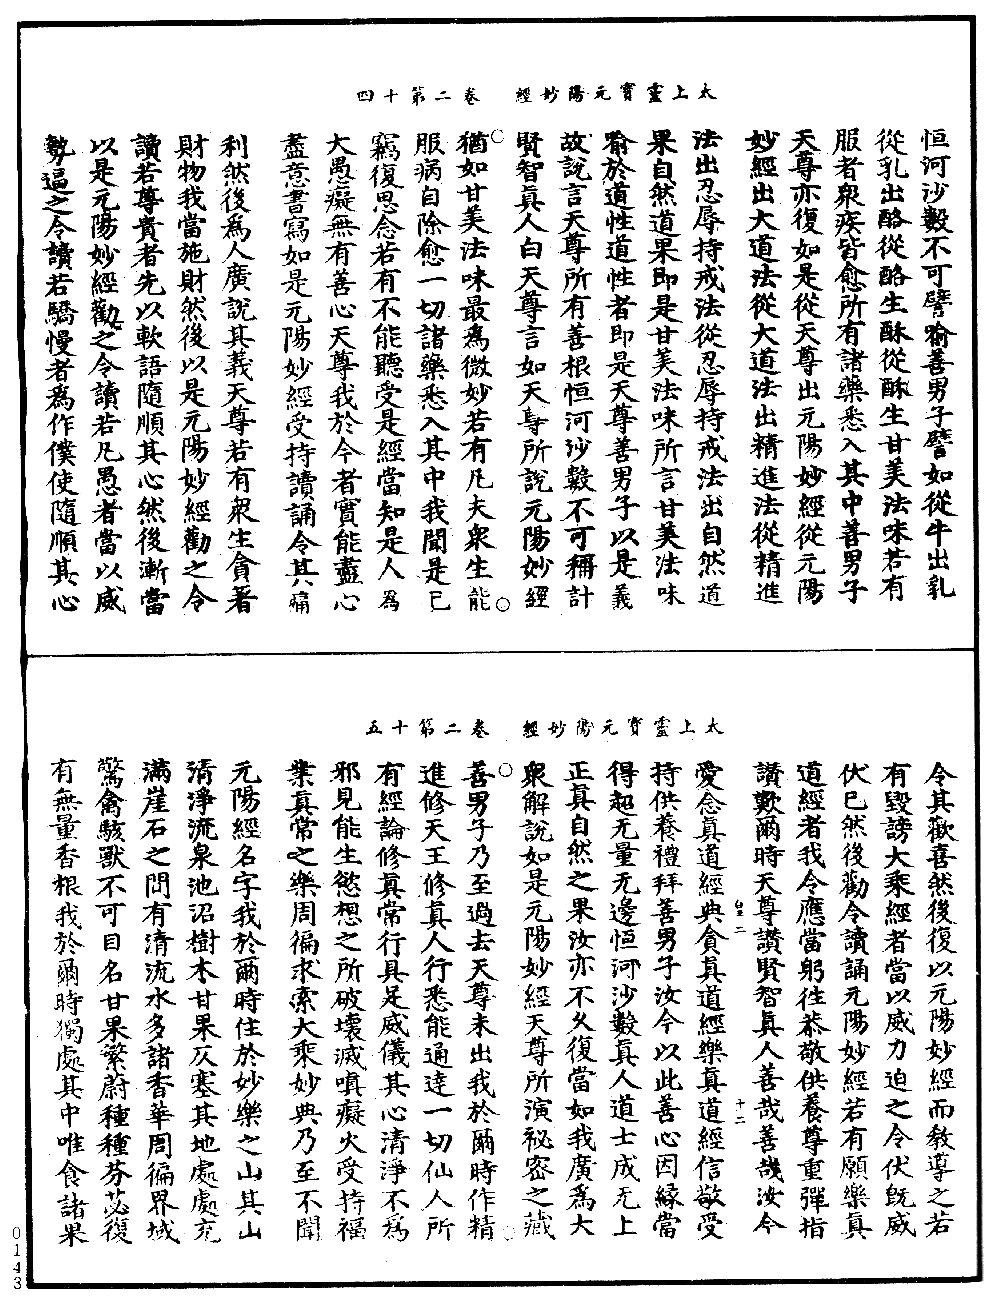 太上靈寶元陽妙經　卷二第十四
恒河沙數不可譬喻善男子譬如從牛出乳
從乳出酪從酪生酥從酥生甘美法味若有
服者衆疾皆愈所有諸藥悉入其中善男子
天尊亦復如是從天尊出元陽妙經從元陽
妙經出大道法從大道法出精進法從精進
法出忍辱持戒法從忍辱持戒法出自然道
果自然道果即是甘美法味所言甘美法味
喻於道性道性者即是天尊善男子以是義
故說言天尊所有善根恒河沙數不可稱計
賢智真人白天尊言如天尊所說元陽妙經
猶如甘美法味最為微妙若有凡夫衆生能
服病自除愈一切諸藥悉入其中我聞是已
竊復思念若有不能聽受是經當知是人為
大愚癡無有善心天尊我於今者實能盡心
盡意書寫如是元陽妙經受持讀誦令其痛
利然後為人廣說其義天尊若有衆生貪著
財物我當施財然後以是元陽妙經勸之令
讀若尊貴者先以軟語隨順其心然後漸當
以是元陽妙經勸之令讀若凡愚者當以威
勢逼之令讀若驕慢者為作僕使隨順其心
太上靈寶元陽妙經　卷二第十五
令其歡喜然後復以元陽妙經而教導之若
有毀謗大乘經者當以威力迫之令伏既威
伏已然後勸令讀誦元陽妙經若有願樂真
道經者我今應當躬往恭敬供養尊重彈指
讚歎爾時天尊讚賢智真人善哉善哉汝今
愛念真道經典貪真道經樂真道經信敬受
持供養禮拜善男子汝今以此善心因緣當
得超无量无邊恒河沙數真人道士成无上
正真自然之果汝亦不久復當如我廣為大
衆解說如是元陽妙經天尊所演祕密之藏
善男子乃至過去天尊未出我於爾時作精
進修天王修真人行悉能通達一切仙人所
有經論修真常行具足威儀其心清淨不為
邪見能生慾想之所破壞滅嗔癡火受持福
業真常之樂周徧求索大乘妙典乃至不聞
元陽經名字我於爾時住於妙樂之山其山
清淨流泉池沼樹木甘果仄塞其地處處充
滿崖石之間有清流水多諸香華周徧界域
驚禽駭獸不可目名甘果繁蔚種種芬苾復
有無量香根我於爾時獨處其中唯食諸果
十二
0143